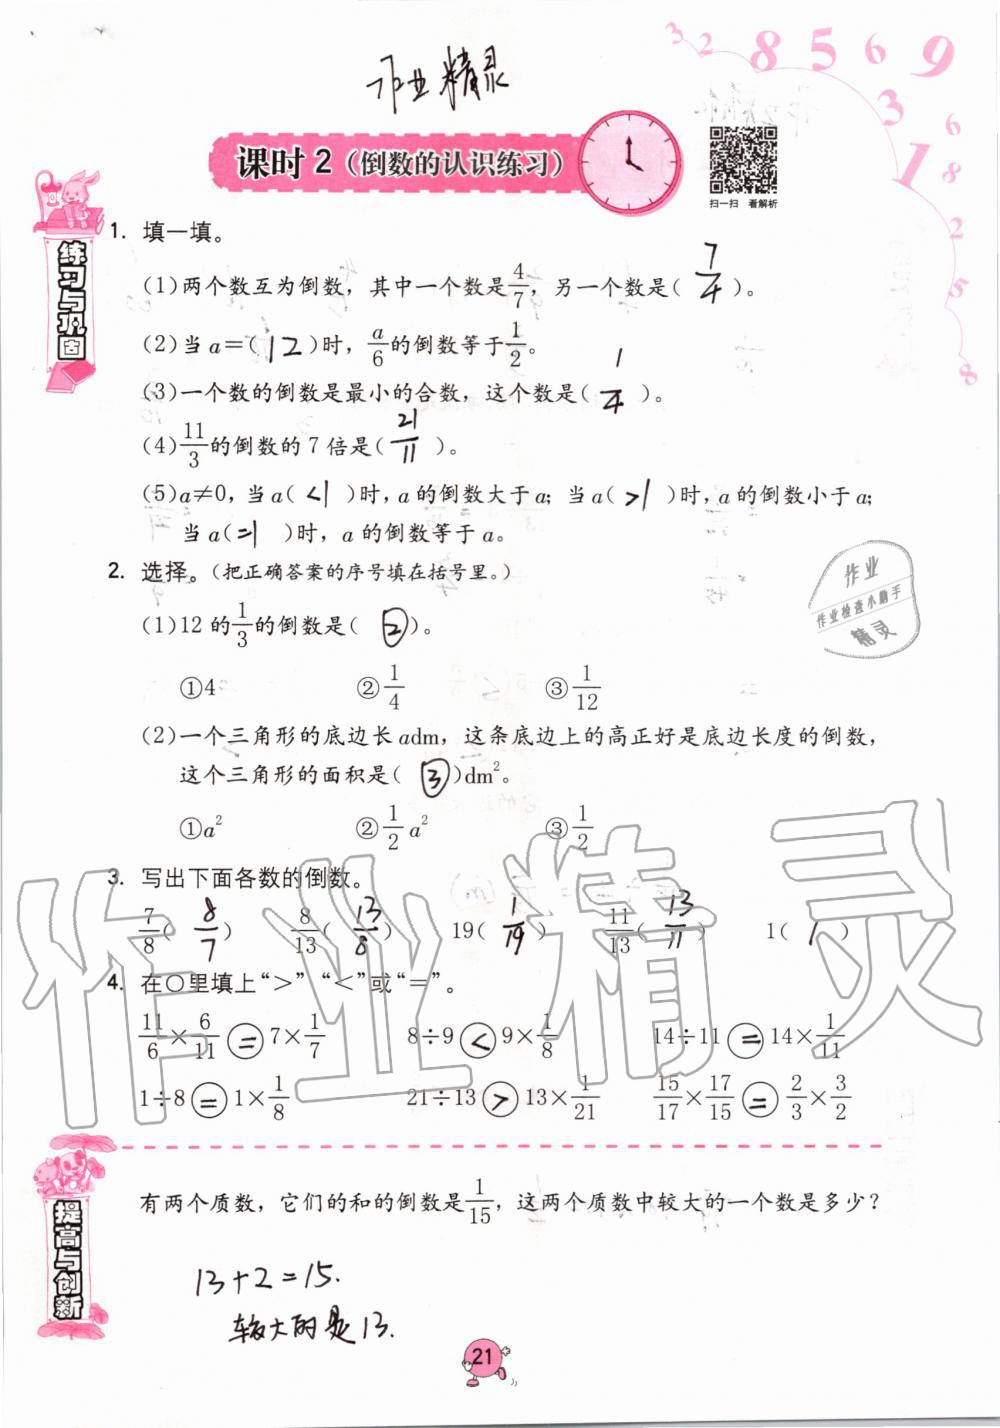 作业精灵
3 2 8 5 6 9 3 6 1 8 2 5 8
课时2(倒数的认识练习)
扫一扫 看解析
练习与巩固
1. 填一填。
(1)两个数互为倒数，其中一个数是4/7，另一个数是( 7/4 )。
(2)当a=( 12 )时，a/6的倒数等于1/2。
(3)一个数的倒数是最小的合数，这个数是( 1/4 )。
(4)11/3的倒数的7倍是( 21/11 )。
(5)a≠0，当a( <1 )时，a的倒数大于a；当a( >1 )时，a的倒数小于a；
当a( =1 )时，a的倒数等于a。
2. 选择。(把正确答案的序号填在括号里。)
(1)12的1/3的倒数是( ② )。
①4 ②1/4 ③1/12
(2)一个三角形的底边长adm，这条底边上的高正好是底边长度的倒数，
这个三角形的面积是( ③ )dm²。
①a² ②1/2a² ③1/2
作业
作业检查小助手
精灵
3. 写出下面各数的倒数。
7/8( 8/7 ) 8/13( 13/8 ) 19( 1/19 ) 11/13( 13/11 ) 1( 1 )
4. 在○里填上“>”“<”或“=”。
11/6×6/11 = 7×1/7 8÷9 < 9×1/8 14÷11 = 14×1/11
1÷8 = 1×1/8 21÷13 > 13×1/21 15/17×17/15 = 2/3×3/2
作业精灵
提高与创新
有两个质数，它们的和的倒数是1/15，这两个质数中较大的一个数是多少？
13+2=15.
较大的是13.
21